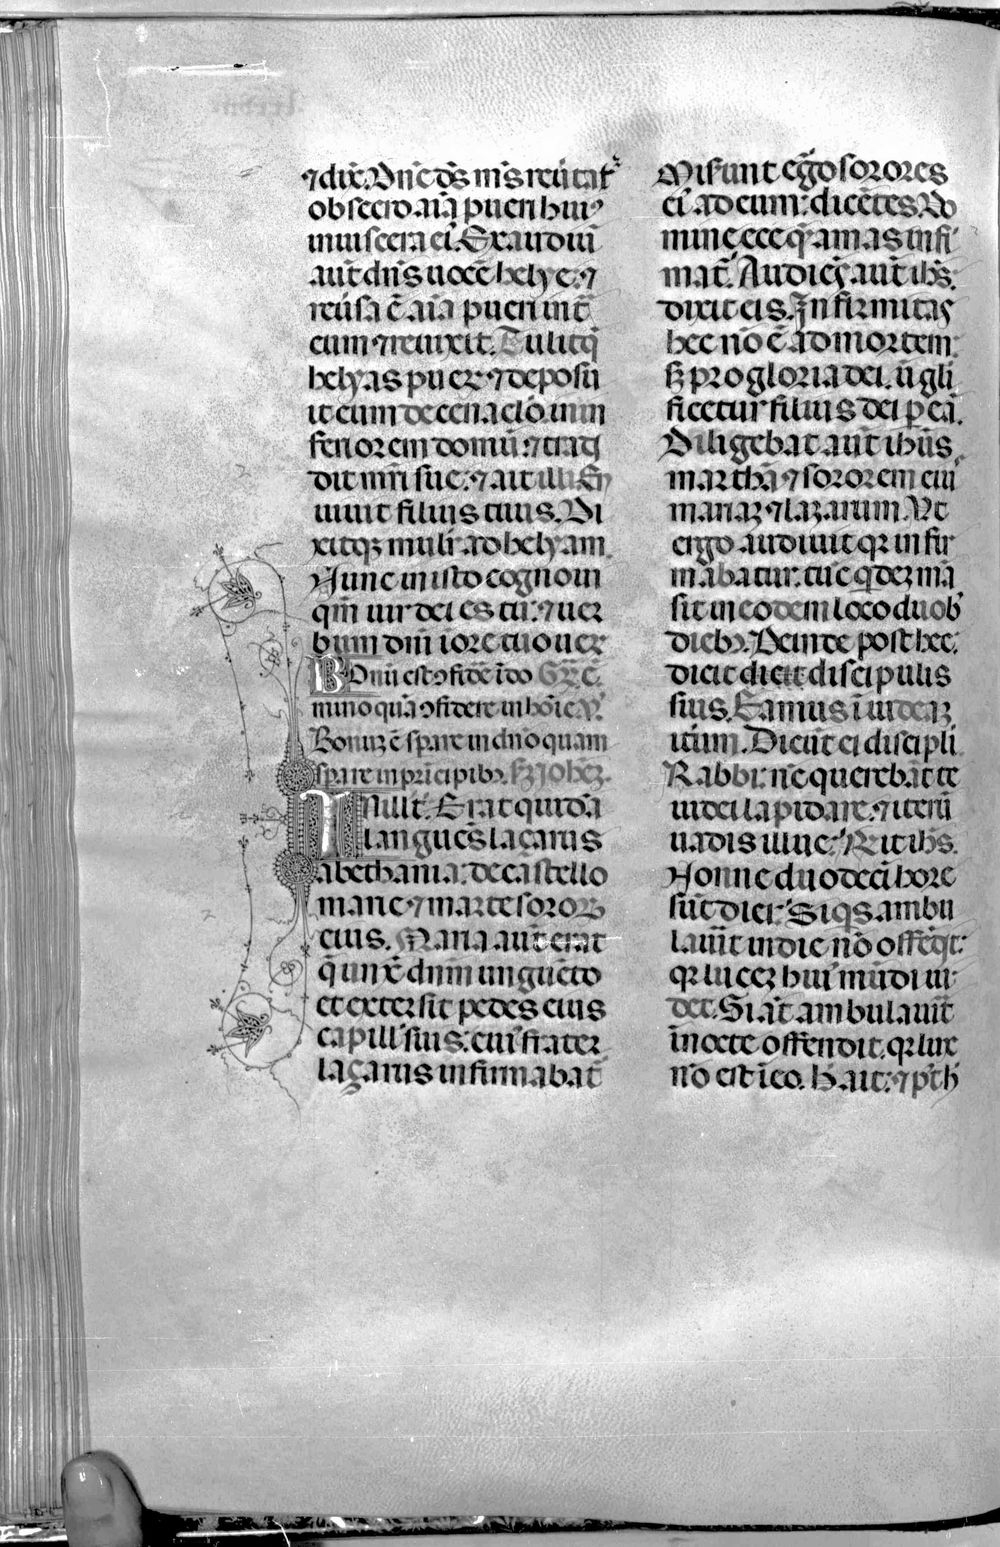 ⁊ dix̄. Dn̄e d̄s m̄s reu̾tat̃
obsecro aīa pueri hui⁹
in uiscera ei⁹. Exaudiui
aūt dn̄s uocē helye. ⁊
reu̾sa ē aīa pueri int̃
eum ⁊ reuixit. Tulitq̄
helyas puer̄. ⁊ deposu
it eum de cenac̄lo in in
feriorem domū. ⁊ tradi
dit mr̄i sue. ⁊ ait illi. En
uiuit filius tuus. Di
xitq̄ꝫ muli̾ ad helyam.
Nunc in isto cognoui
qm̄ uir dei es tu. ⁊ uer
bum dn̄i i ore tuo uer̄
Bonū est ↄfidē̾ i dn̄o Gr̄.
in dn̄o quā ↄfidere in hoīe. V̄.
Bonuꝫ ē sp̱are in dn̄o quam
sp̱are in prīcipibꝫ. Sꝫ Ioh̄eꝫ.
In illo t̄. Erat quidā
languēs laçarus
a bethania. de castello
marie ⁊ marte soroꝝ
eius. Maria aūt erat
q̄ unx̄ dnm̄ unguēto
et extersit pedes eius
capill̾ suis. cui⁹ frater
laçarus infirmabat̃
Miserunt ẽgo sorores
ei⁹ ad eum. dicētes. Do
mine ecce q̄ amas infi̾
mat̃. Audiēs aūt ih̄s.
dixit eis. Infirmitas
hec nō ē ad mortem.
sꝫ pro gloria dei. ut gl̾i
ficetur filius dei p̱ eā.
Diligebat aūt ihūs
marthā ⁊ sororem ei⁹
mariaꝫ ⁊ laꝫarum. Vt
ergo audiuit qꝛ infir
mabatur. tūc q̱deꝫ mā
sit in eodem loco duob⁹
diebꝫ. Deinde post hec.
dicit dicit discipulis
suis. Eamus i iudeaꝫ
it̾um. Dicūt ei discipl̾i
Rabbi. nūc querebāt te
iudei lapidare. ⁊ iterū
uadis illuc. Re̾it ih̄s.
Nonne duodecī hore
sūt diei. Siq̄s ambu
lau̾it in die nō offēdit.
qꝛ luceꝫ hui⁹ mūdi ui
det. Si aūt ambulau̾it
i nocte offendit. qꝛ lux
nō est i eo. H̾ ait. ⁊ p⁹ h̾